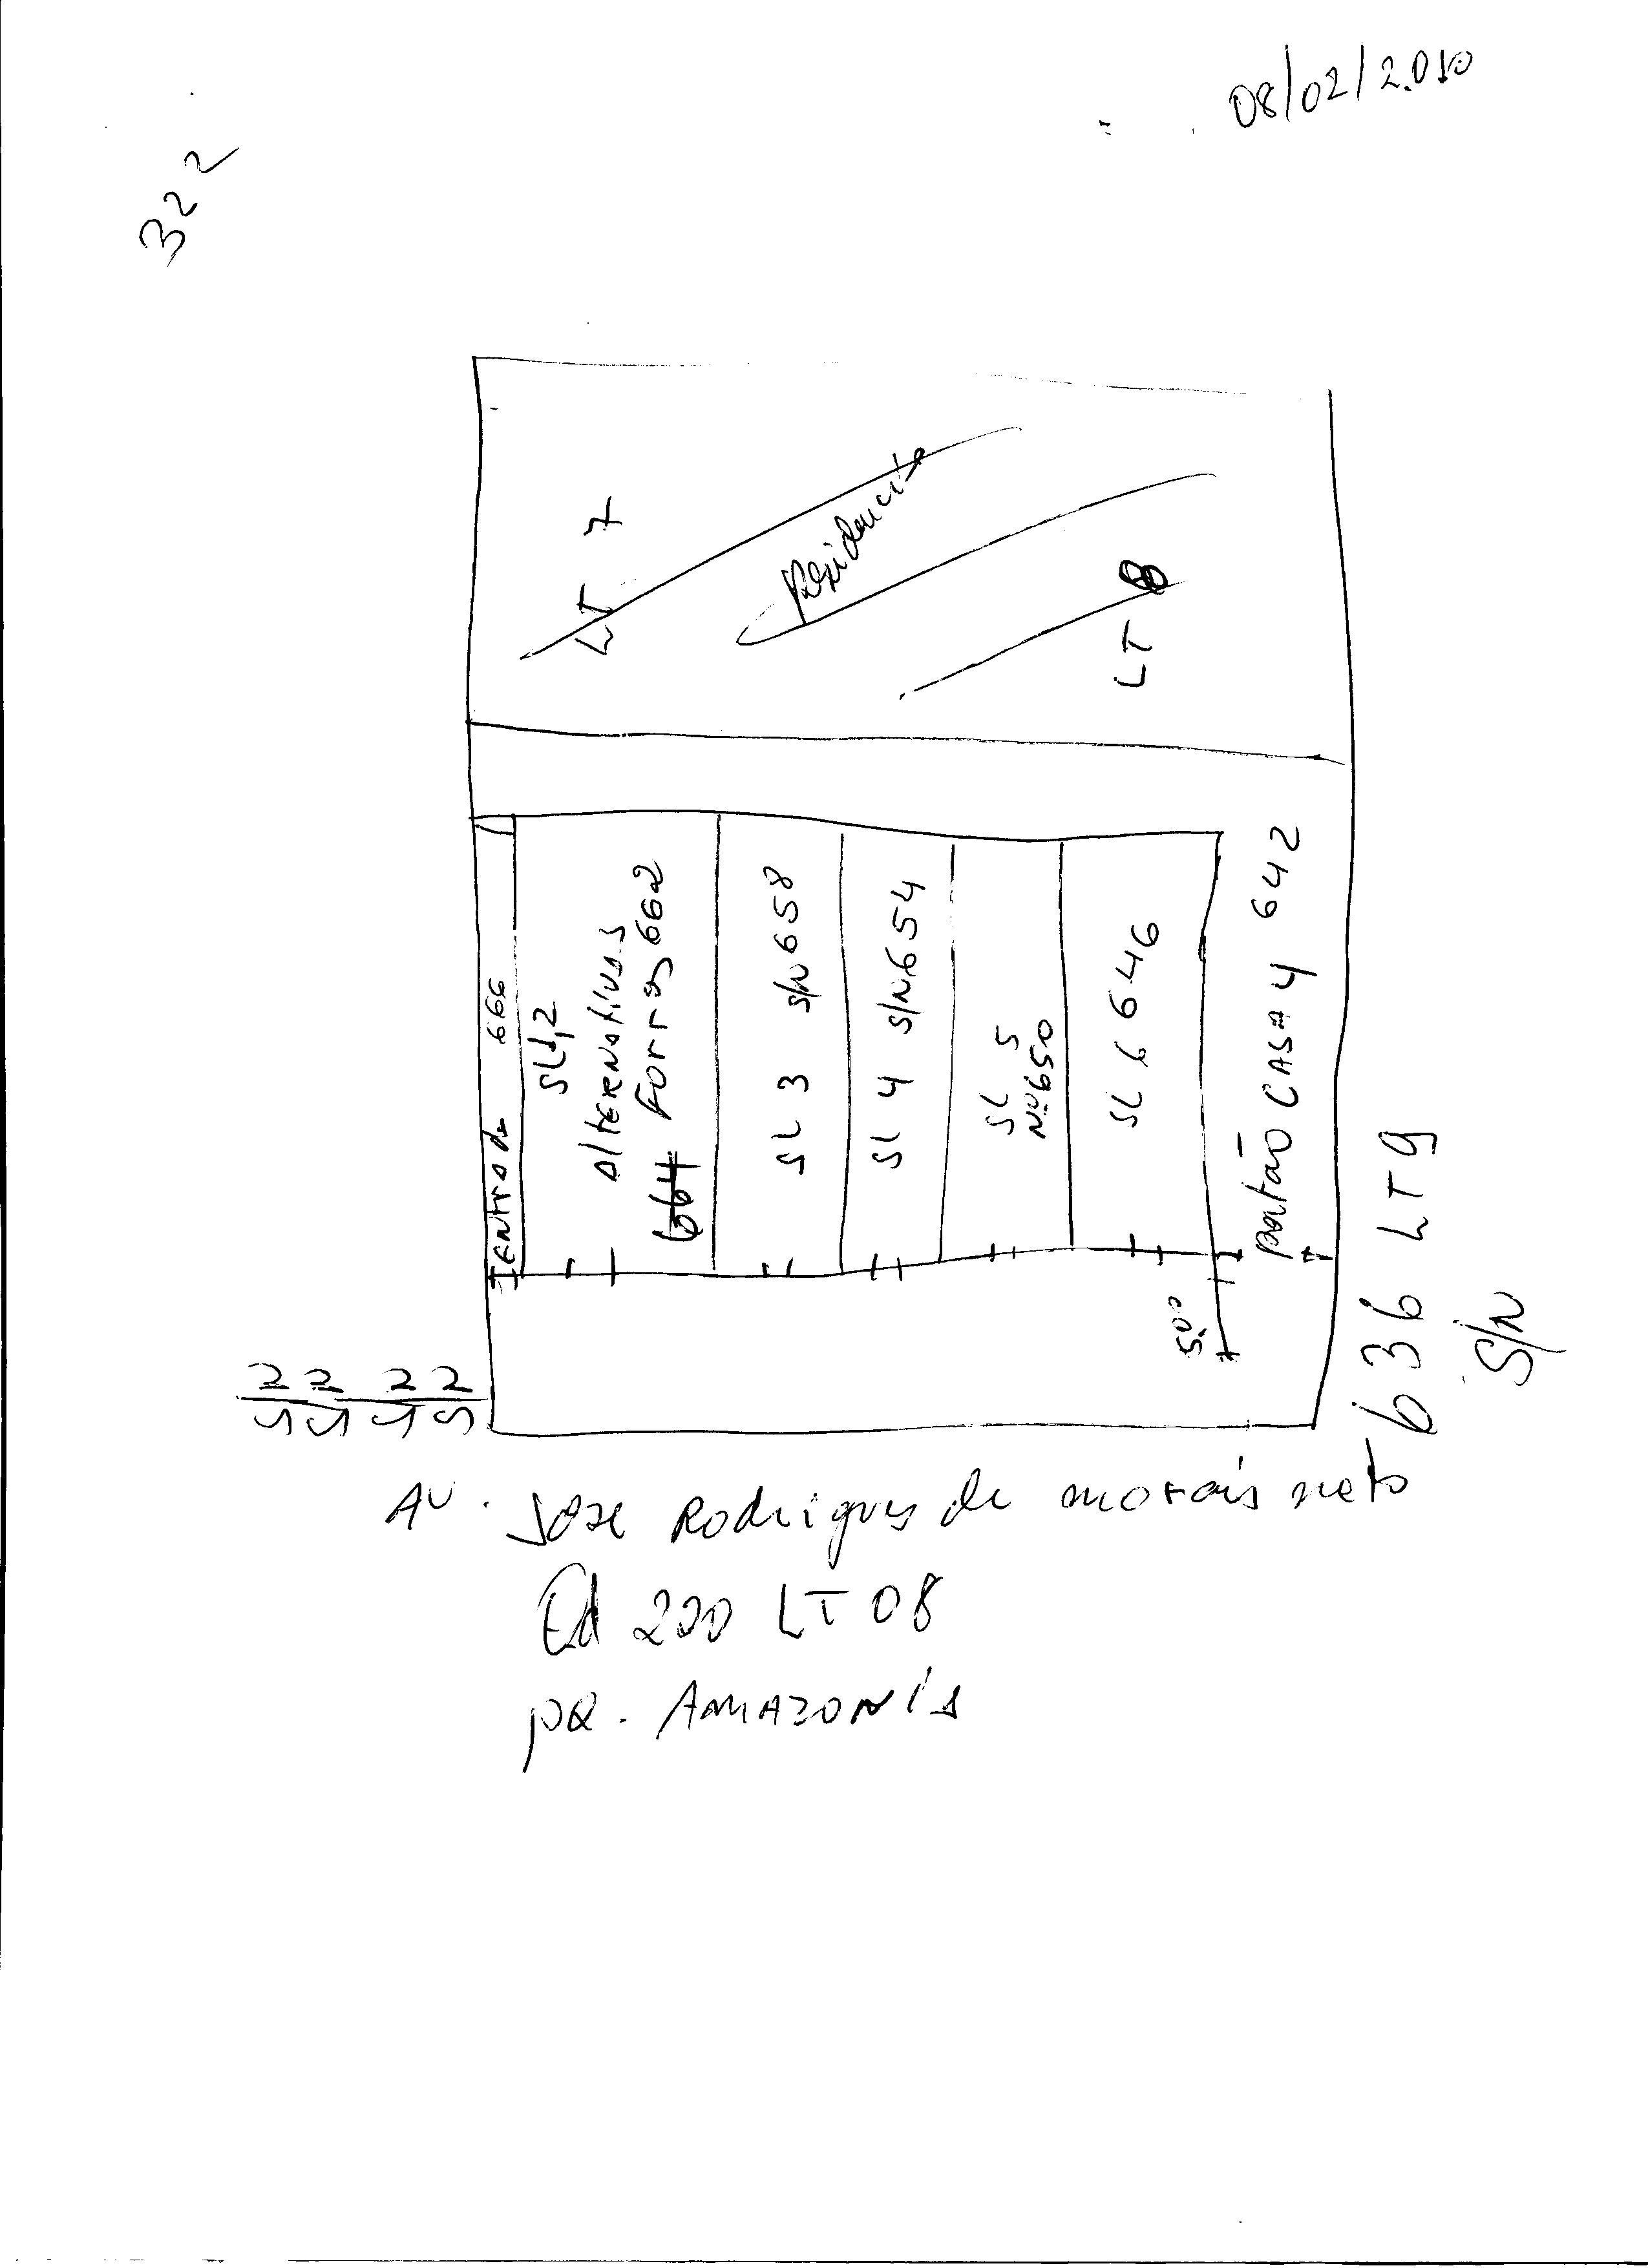 08/02/2.010
322
LT 7
Residencia
LT 8
ENTRADA 666
SL1,2
AlterNativas
664 Forros 662
SL 3 S/N 658
SL 4 S/N 654
SL 5
Nº 650
SL 6 646
5,00
Portão CASA 4 642
636 LT 9
S/N
Av. Jose Rodrigues de morais neto
Qd 200 LT 08
PQ. AMAZONIA